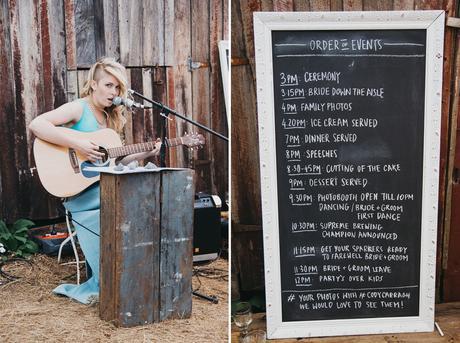 ORDER OF EVENTS
3PM: CEREMONY
3:15PM: BRIDE DOWN THE AISLE
4PM: FAMILY PHOTOS
4:20PM: ICE CREAM SERVED
7PM: DINNER SERVED
8PM: SPEECHES
8:30-8:45PM: CUTTING OF THE CAKE
9PM: DESSERT SERVED
9:30PM: PHOTOBOOTH OPEN TILL 10PM
DANCING / BRIDE + GROOM
FIRST DANCE
10:30PM: SUPREME BREWING
CHAMPION ANNOUNCED
11:15PM: GET YOUR SPARKLERS READY
TO FAREWELL BRIDE + GROOM
11:30PM BRIDE + GROOM LEAVE
12PM: PARTY'S OVER KIDS
# YOUR PHOTOS WITH #CODYCARRAGH
WE WOULD LOVE TO SEE THEM!